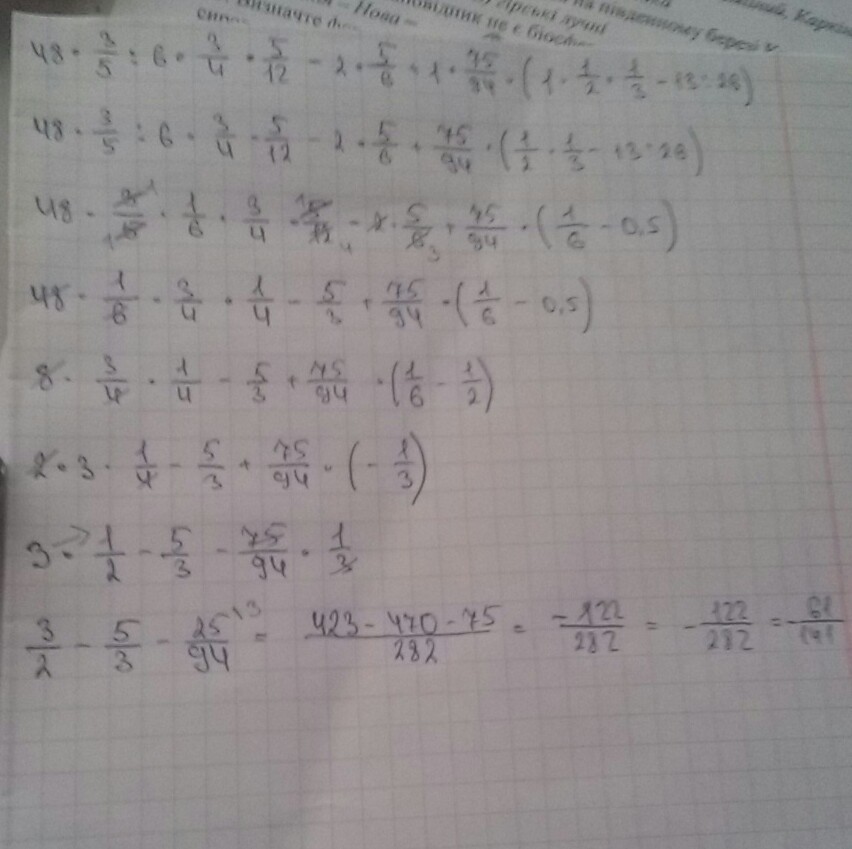 Визначте
Нова –
гірські лучні
на південному березі
48 · 3/5 : 6 · 3/4 · 5/12 − 2 · 5/6 + 1 · 75/94 · (1 · 1/2 · 1/3 − 13 : 26)
48 · 3/5 : 6 · 3/4 · 5/12 − 2 · 5/6 + 75/94 · (1/2 · 1/3 − 13 : 26)
48 · 3/5 · 1/6 · 3/4 · 5/12 − 2 · 5/6 + 75/94 · (1/6 − 0,5)
48 · 1/6 · 3/4 · 1/4 − 5/3 + 75/94 · (1/6 − 0,5)
8 · 3/4 · 1/4 − 5/3 + 75/94 · (1/6 − 1/2)
2 · 3 · 1/4 − 5/3 + 75/94 · (− 1/3)
3 · 1/2 − 5/3 − 75/94 · 1/3
3/2 − 5/3 − 25/94 = (423 − 470 − 75)/282 = −122/282 = − 122/282 = − 61/141